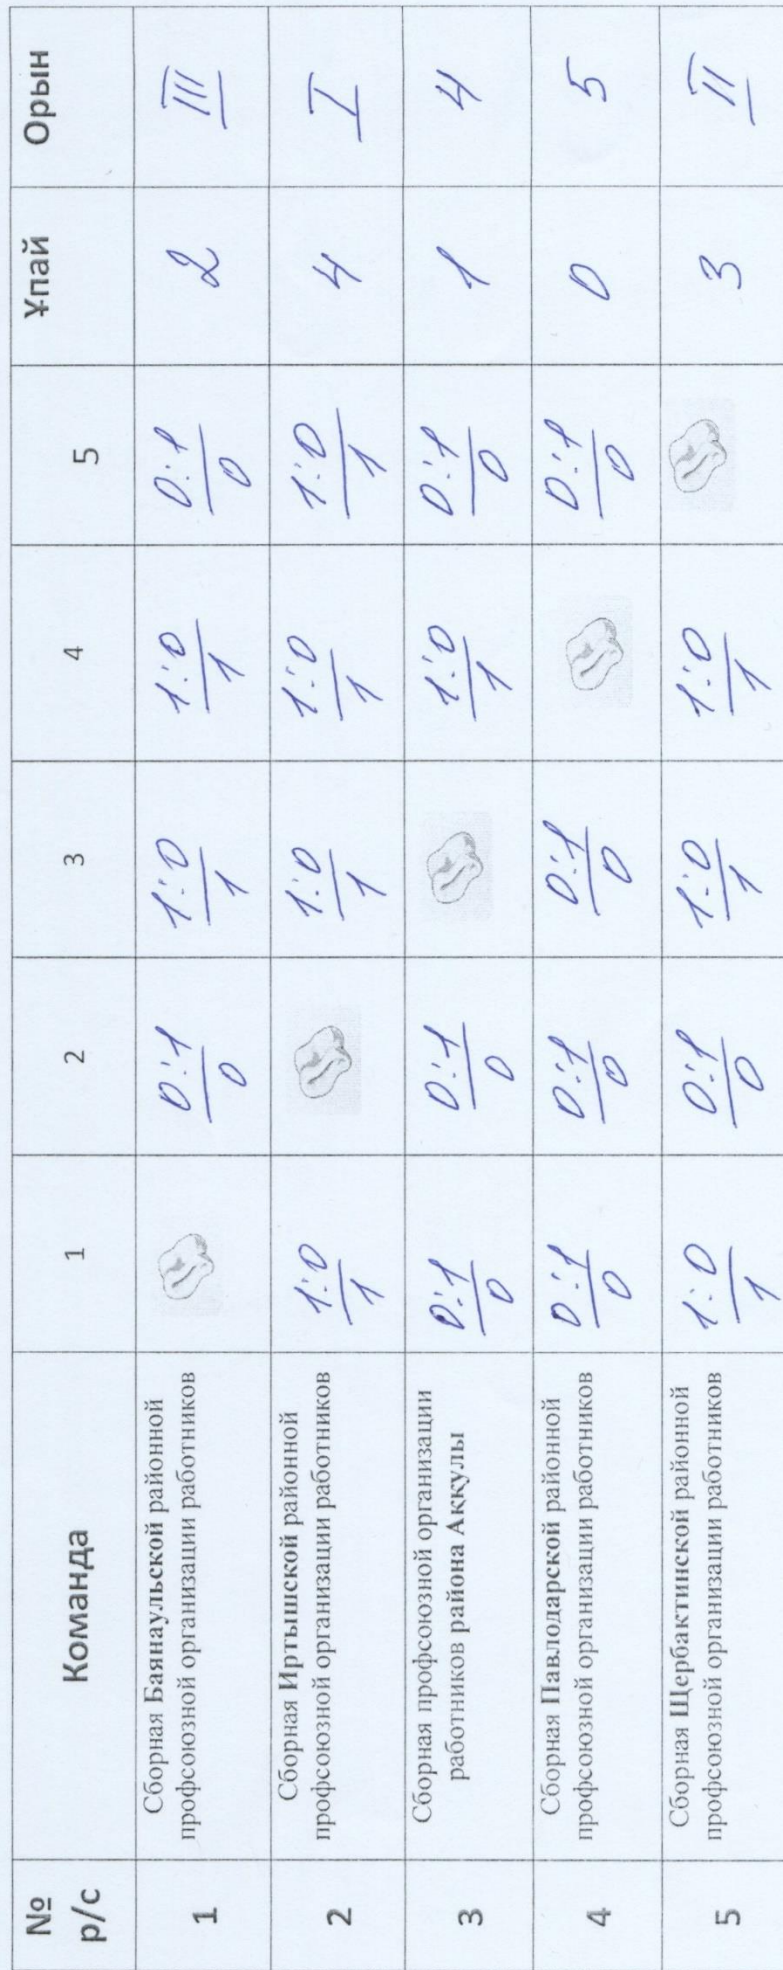 № р/с Команда 1 2 3 4 5 Ұпай Орын
1 Сборная Баянаульской районной профсоюзной организации работников 0:1 0 1:0 1 1:0 1 0:1 0 2 III
2 Сборная Иртышской районной профсоюзной организации работников 1:0 1 1:0 1 1:0 1 1:0 1 4 I
3 Сборная профсоюзной организации работников района Аккулы 0:1 0 0:1 0 1:0 1 0:1 0 1 4
4 Сборная Павлодарской районной профсоюзной организации работников 0:1 0 0:1 0 0:1 0 0:1 0 0 5
5 Сборная Щербактинской районной профсоюзной организации работников 1:0 1 0:1 0 1:0 1 1:0 1 3 II